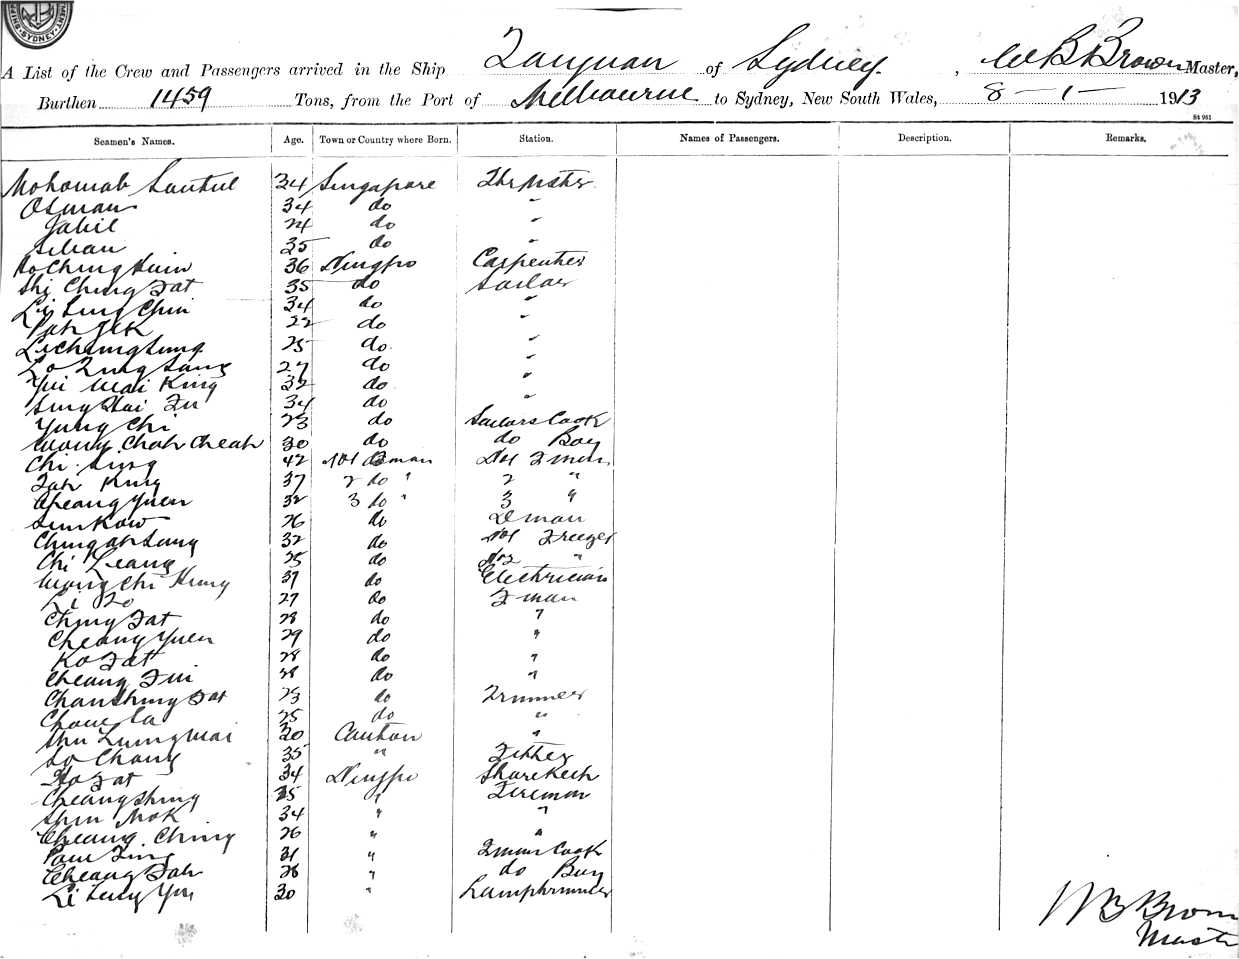 SYDNEY
A List of the Crew and Passengers arrived in the Ship Taiyuan of Sydney. , W B Brown Master,
Burthen 1459 Tons, from the Port of Melbourne to Sydney, New South Wales, 8 - 1 - 1913
St 951
Seamen's Names. Age. Town or Country where Born. Station. Names of Passengers. Description. Remarks.
34 Singapore
Osman 34 do "
24 do "
35 do "
36 Ningpo Carpenter
Shi Ching Fat 35 do Sailor
Li Ling Chin 34 do "
22 do "
Li Ching Sung 25 do "
27 do "
Yui Wai King 32 do "
34 do "
Yung Chi 23 do Sailors Cook
Wong Chah Cheah 30 do do Boy
Chi Sing 42 No1 Fman
Tah Kung 37 2 do " 2 "
Cheang Yuen 32 3 do " 3 "
Sun Kow 26 do
Ching ah Sang 32 do No1 Freezer
Chi Leang 25 do No2 "
Wong Chi Hung 37 do Electrician
27 do Fman
Ching Fat 28 do "
Cheang Yuen 29 do "
Ko Fat 28 do "
Cheang Fui 28 do "
Chan Shing Fat 23 do Trimmer
25 do "
Shu Lung Wai 20 Canton "
So Chang 35 " Fitter
Ho Fat 34 Ningpo
Cheang Shing 25 " Fireman
Shin Mok 34 " "
Cheang Ching 26 " "
31 " Fmans Cook
Cheang Fah 28 " do Boy
Li Lung Yui 30 " Lamptrimmer
W B Brown
Master